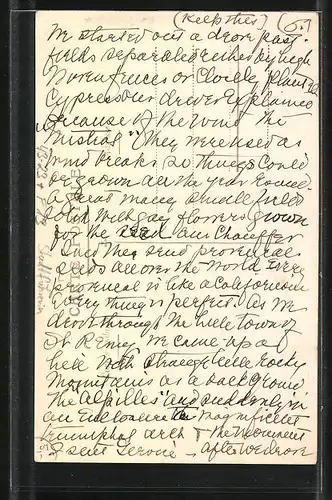 (Keep this) 
We started out & drove past
fields separated either by high
woven fences or closely planted
Cypress our driver explained
because of the wind the
Mistral" They were used as
wind breaks so things could
be grown all the year round.
a great many small fields
solid with gay flowers grown
for the seed our Chauffer
said they send provencal
seeds all over the world Every
provencal is like a Californian
Every thing is perfect. As we
drove through the little town of
St Remy we came up a
hill with strange little rocky
Mountains as a back ground
The Alpilles and suddenly in
an Enclosure the magnificent
triumphal arch & the Monument
after we drove